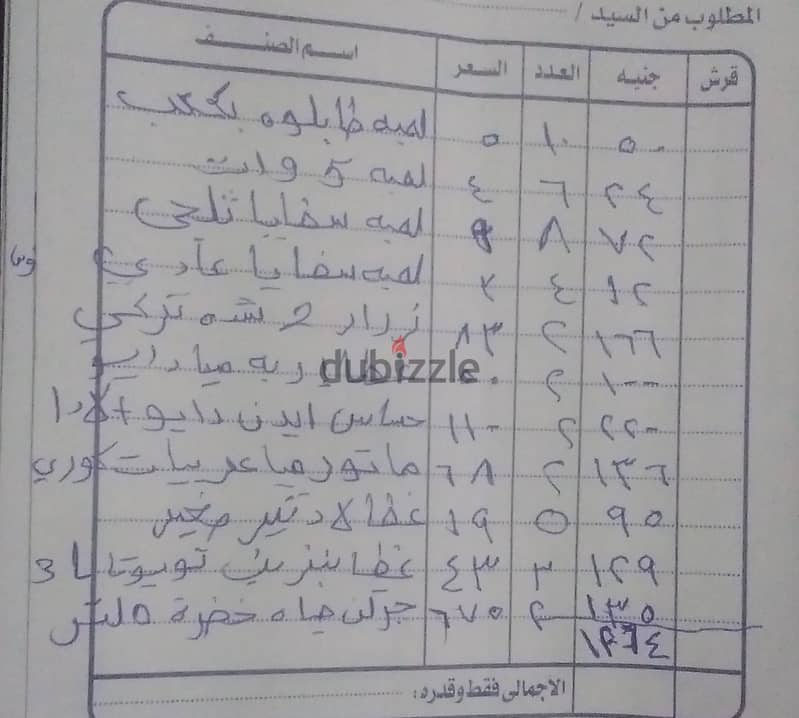 المطلوب من السيد /
قرش جنيه العدد السعر اسم الصنف
٥٠ ١٠ ٥ لمبه طابلوه بكعب
٢٤ ٦ ٤ لمبه 5 وات
٧٢ ٨ ٩ لمبه سفايا ثلجى
١٢ ٤ ٣ لمبه سفايا عادي
١٦٦ ٢ ٨٣ زرار 2 تركي
١٠٠ ٢ ٥٠ ربه ميا دايو
٢٢٠ ٢ ١١٠ حساس ايدن دايو + لادا
١٣٦ ٢ ٦٨ ماتور ميا عربيات كوري
٩٥ ٥ ١٩ غطا لاد تير صغير
١٢٩ ٣ ٤٣ غطا بنزين تويوتا
١٣٥ ٢ ٦٧٥ جركن مياه خضرة
الاجمالى فقط وقدره:
dubizzle